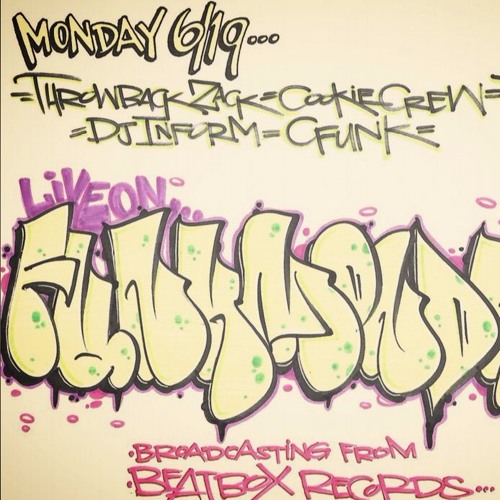 MONDAY 6/19...
=THROWBACK ZACK=COOKIECREW=
=DJ INFORM=CFUNK=
LIVE ON...
FUNKMOND
BROADCASTING FROM
BEATBOX RECORDS...